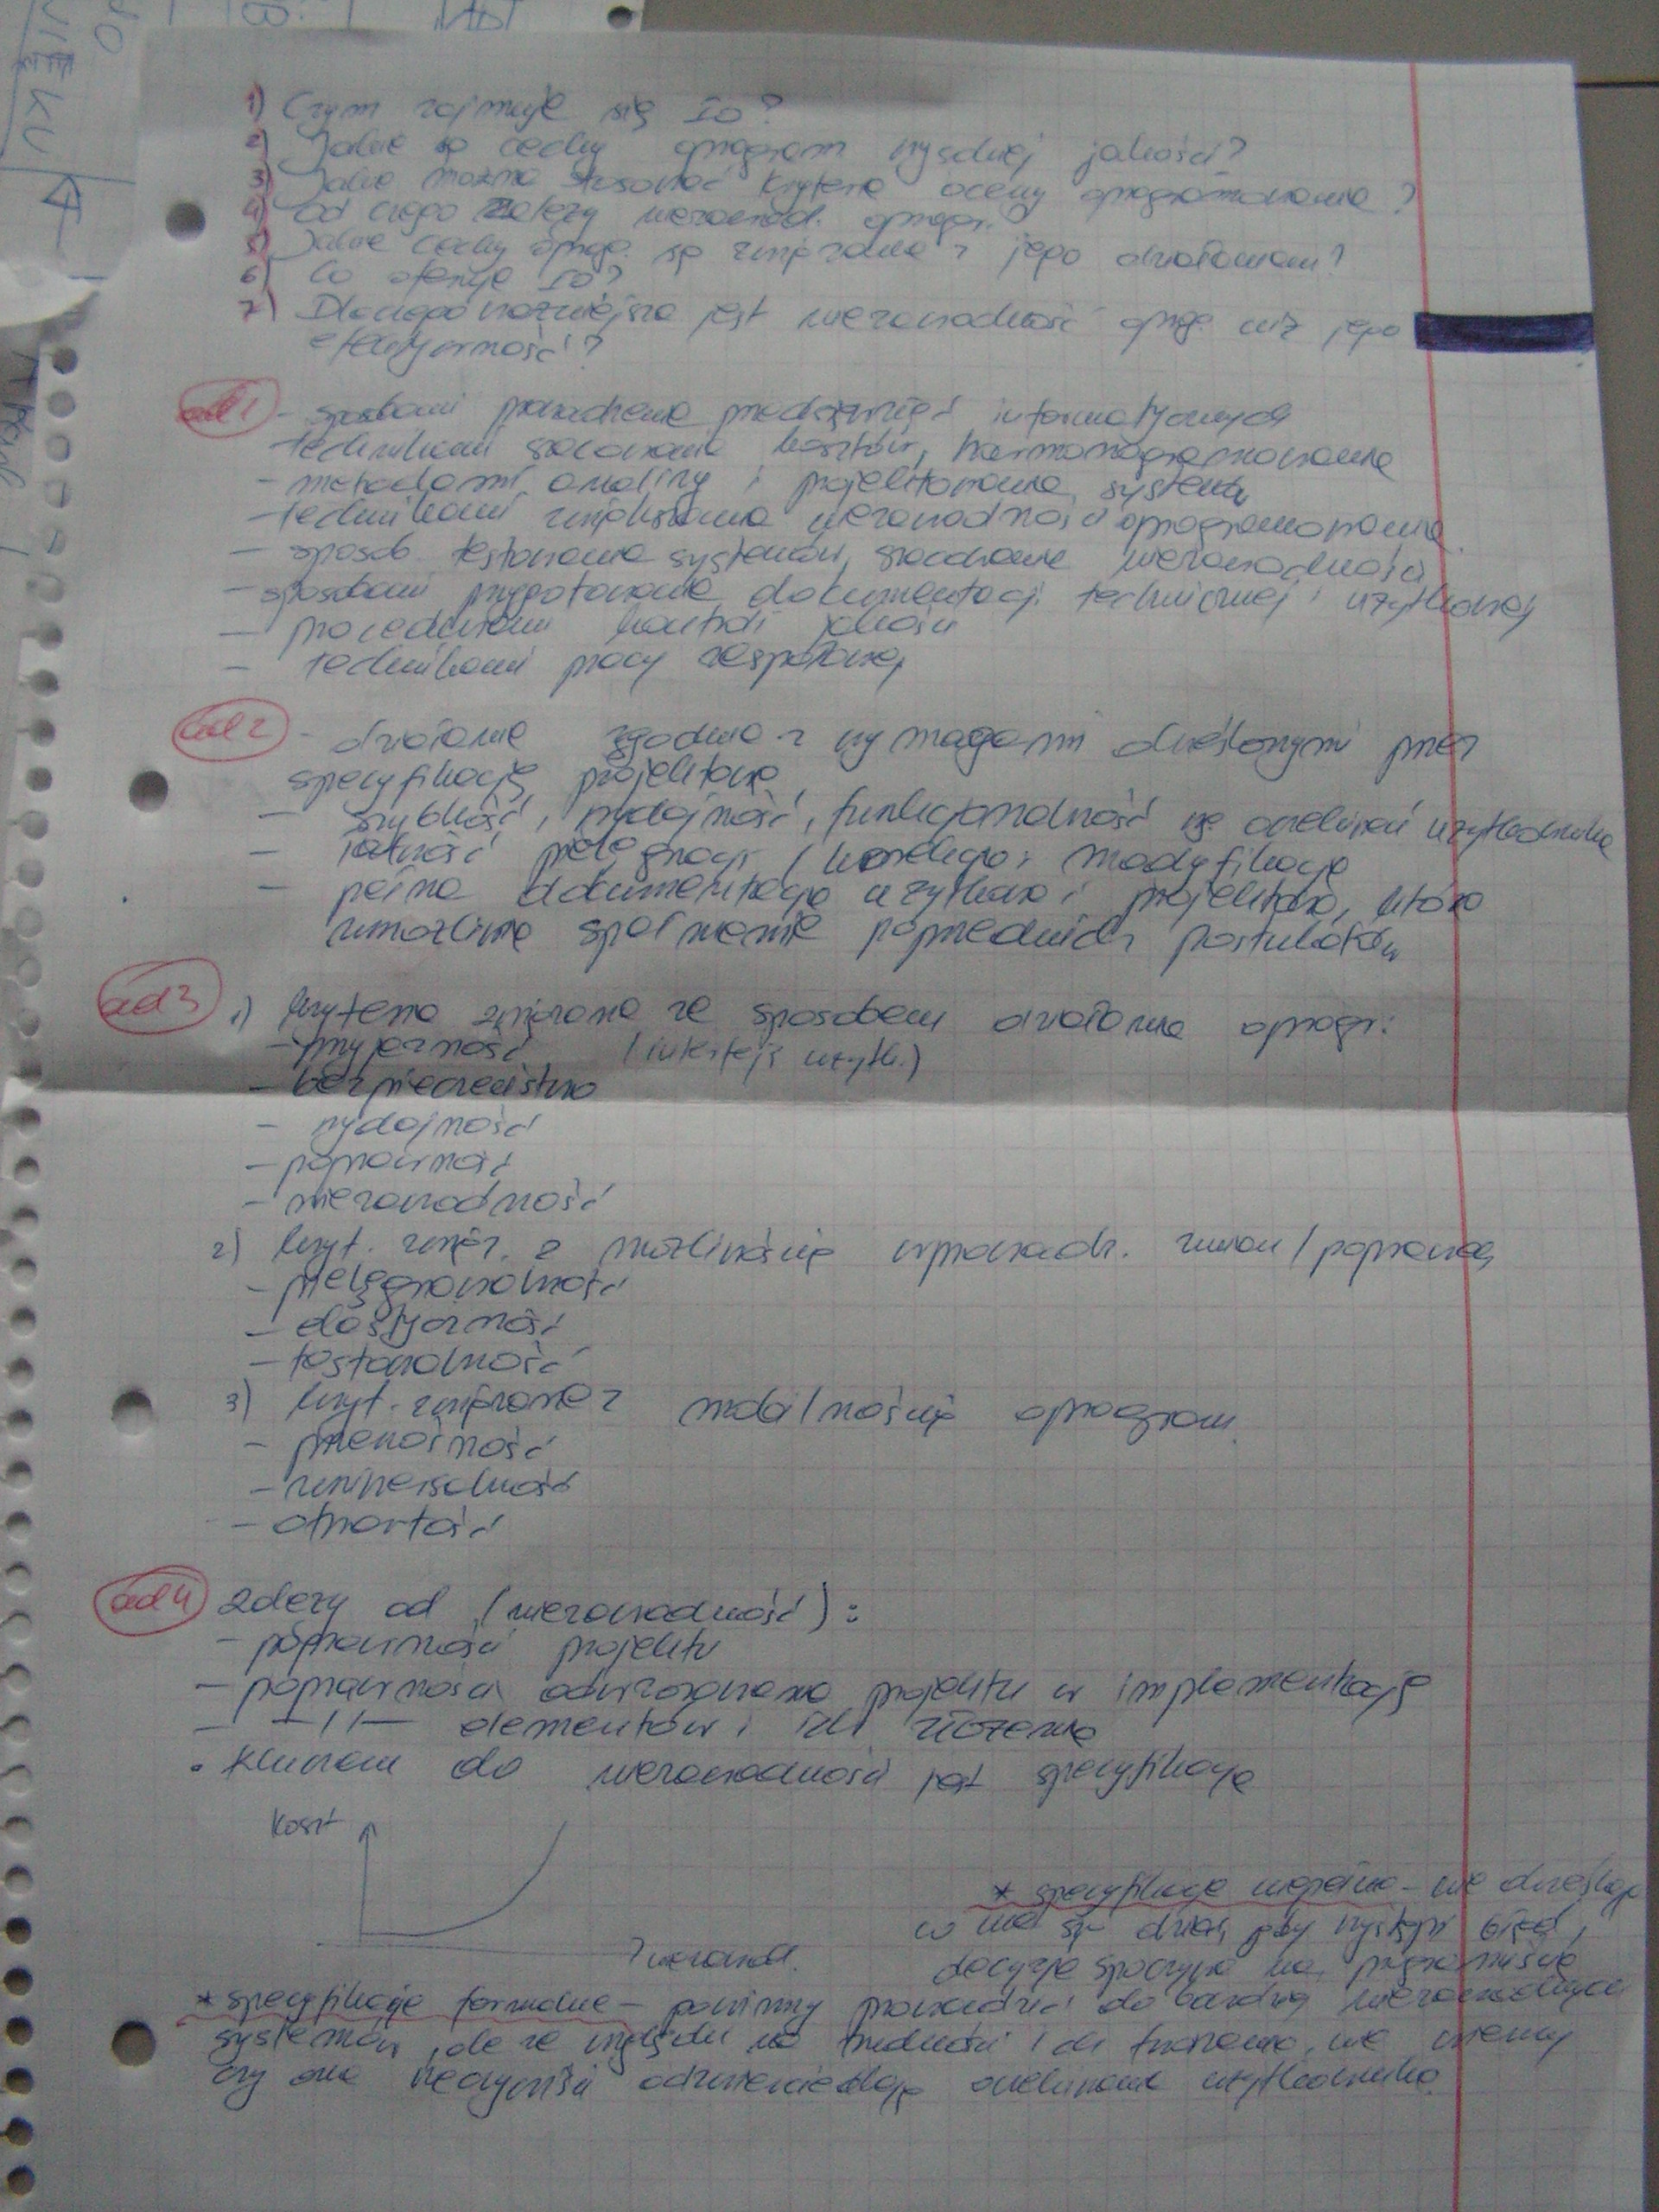 1) Czym zajmuje się IO?
2) Jakie są cechy oprogram wysokiej jakości?
3) Jakie można stosować kryteria oceny oprogramowania?
4) Od czego zależy niezawod. oprogr.?
5) Jakie cechy oprog. są związane z jego działaniem?
6) Co oferuje IO?
7) Dlaczego ważniejsza jest niezawodność oprog. niż jego
efektywność?
ad 1 - sposobami prowadzenia przedsięwzięć informatycznych
technikami szacowania kosztów, harmonogramowania
- metodami analizy i projektowania systemów
- technikami zwiększania niezawodności oprogramowania
- sposob. testowania systemów, szacowania niezawodności
- sposobami przygotowania dokumentacji technicznej i użytkowej
- procedurami kontroli jakości
- technikami pracy zespołowej
ad 2 - działanie zgodne z wymaganiami określonymi przez
specyfikację projektową
- szybkość, wydajność, funkcjonalność wg oczekiwań użytkownika
- łatwość pielęgnacji / korekcja i modyfikacja
- pełna dokumentacja użytkowa i projektowa, która
umożliwia spełnienie poprzednich postulatów
ad 3 1) kryteria związane ze sposobem działania oprogr:
- przyjazność (interfejs użytk.)
- bezpieczeństwo
- wydajność
- poprawność
- niezawodność
2) kryt. związ. z możliwością wprowadz. zmian / poprawek
- pielęgnowalność
- elastyczność
- testowalność
3) kryt. związane z mobilnością oprogram.
- przenośność
- uniwersalność
- otwartość
ad 4 zależy od (niezawodność):
- poprawności projektu
- poprawności odwzorowania projektu w implementację
- -//- elementów i ich złożenia
• Kluczem do niezawodności jest specyfikacja
koszt
niezawod.
* specyfikacja niepełna - nie określają
co ma się dziać, gdy wystąpi błąd,
decyzja spoczywa na programiście
* specyfikacje formalne - powinny prowadzić do bardziej niezawodnych
systemów, ale ze względu na trudności ich tworzenia, nie wiemy
czy one rzeczywiście odzwierciedlają oczekiwania użytkownika.